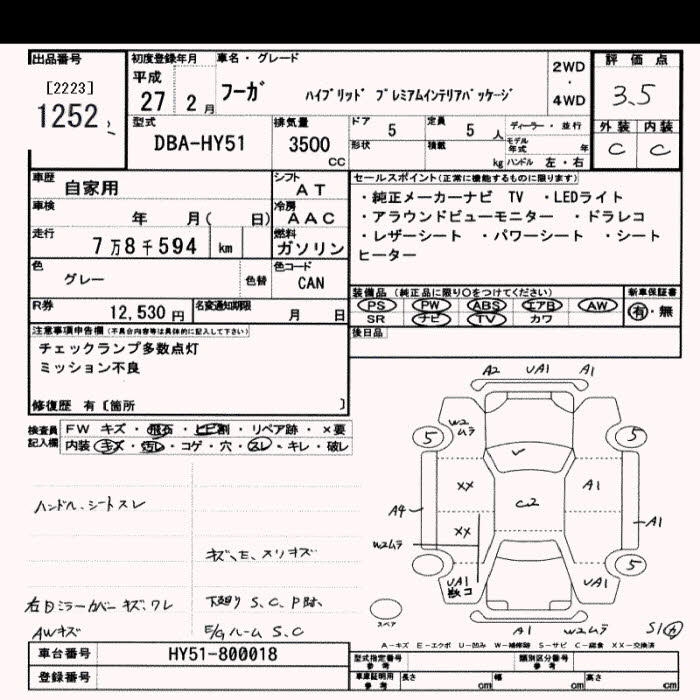 出品番号 初度登録年月 車名・グレード 評価点
[2223] 1252
平成 27 2月
フーガ ハイブリッド プレミアムインテリアパッケージ
2WD・4WD
3.5
外装 内装
C C
型式 DBA-HY51
排気量 3500 CC
ドア 5 定員 5 人 ディーラー・並行
形状 積載 kg モデル年式 年
ハンドル 左・右
車歴 自家用
シフト AT
車検 年 月( 日)
冷房 AAC
走行 7万8千594 km
燃料 ガソリン
色 グレー 色替
色コード CAN
R券 12,530円 名変通知期限 月 日
セールスポイント(正常に機能するものに限ります)
・純正メーカーナビ TV ・LEDライト
・アラウンドビューモニター ・ドラレコ
・レザーシート ・パワーシート ・シート
ヒーター
装備品(純正品に限り○をつけてください) 新車保証書
PS PW ABS エアB AW 有・無
SR ナビ TV カワ
後日品
注意事項申告欄(不具合内容等は具体的に記入して下さい)
チェックランプ多数点灯
ミッション不良
修復歴 有〔箇所 〕
検査員記入欄
FW キズ・飛石・ヒビ割・リペア跡・×要
内装 キズ・汚レ・コゲ・穴・スレ・キレ・破レ
ハンドル、シートスレ
キズ、E、スリキズ
右ドミラーカバー キズ、ワレ 下廻り S、C、P跡、
AWキズ E/Gルーム S、C
A2 UA1 A1
W2ムラ
5 5
XX C2 A1
A4 XX A1
W2ムラ
5
UA1 UA1
スペア
A1 W2ムラ S1
A-キズ E-エクボ U-凹み W-補修跡 S-サビ C-腐食 XX-交換済
車台番号 HY51-800018
登録番号
型式指定番号 参考 類別区分番号 参考
車庫証明用 参考 長さ cm 幅 cm 高さ cm